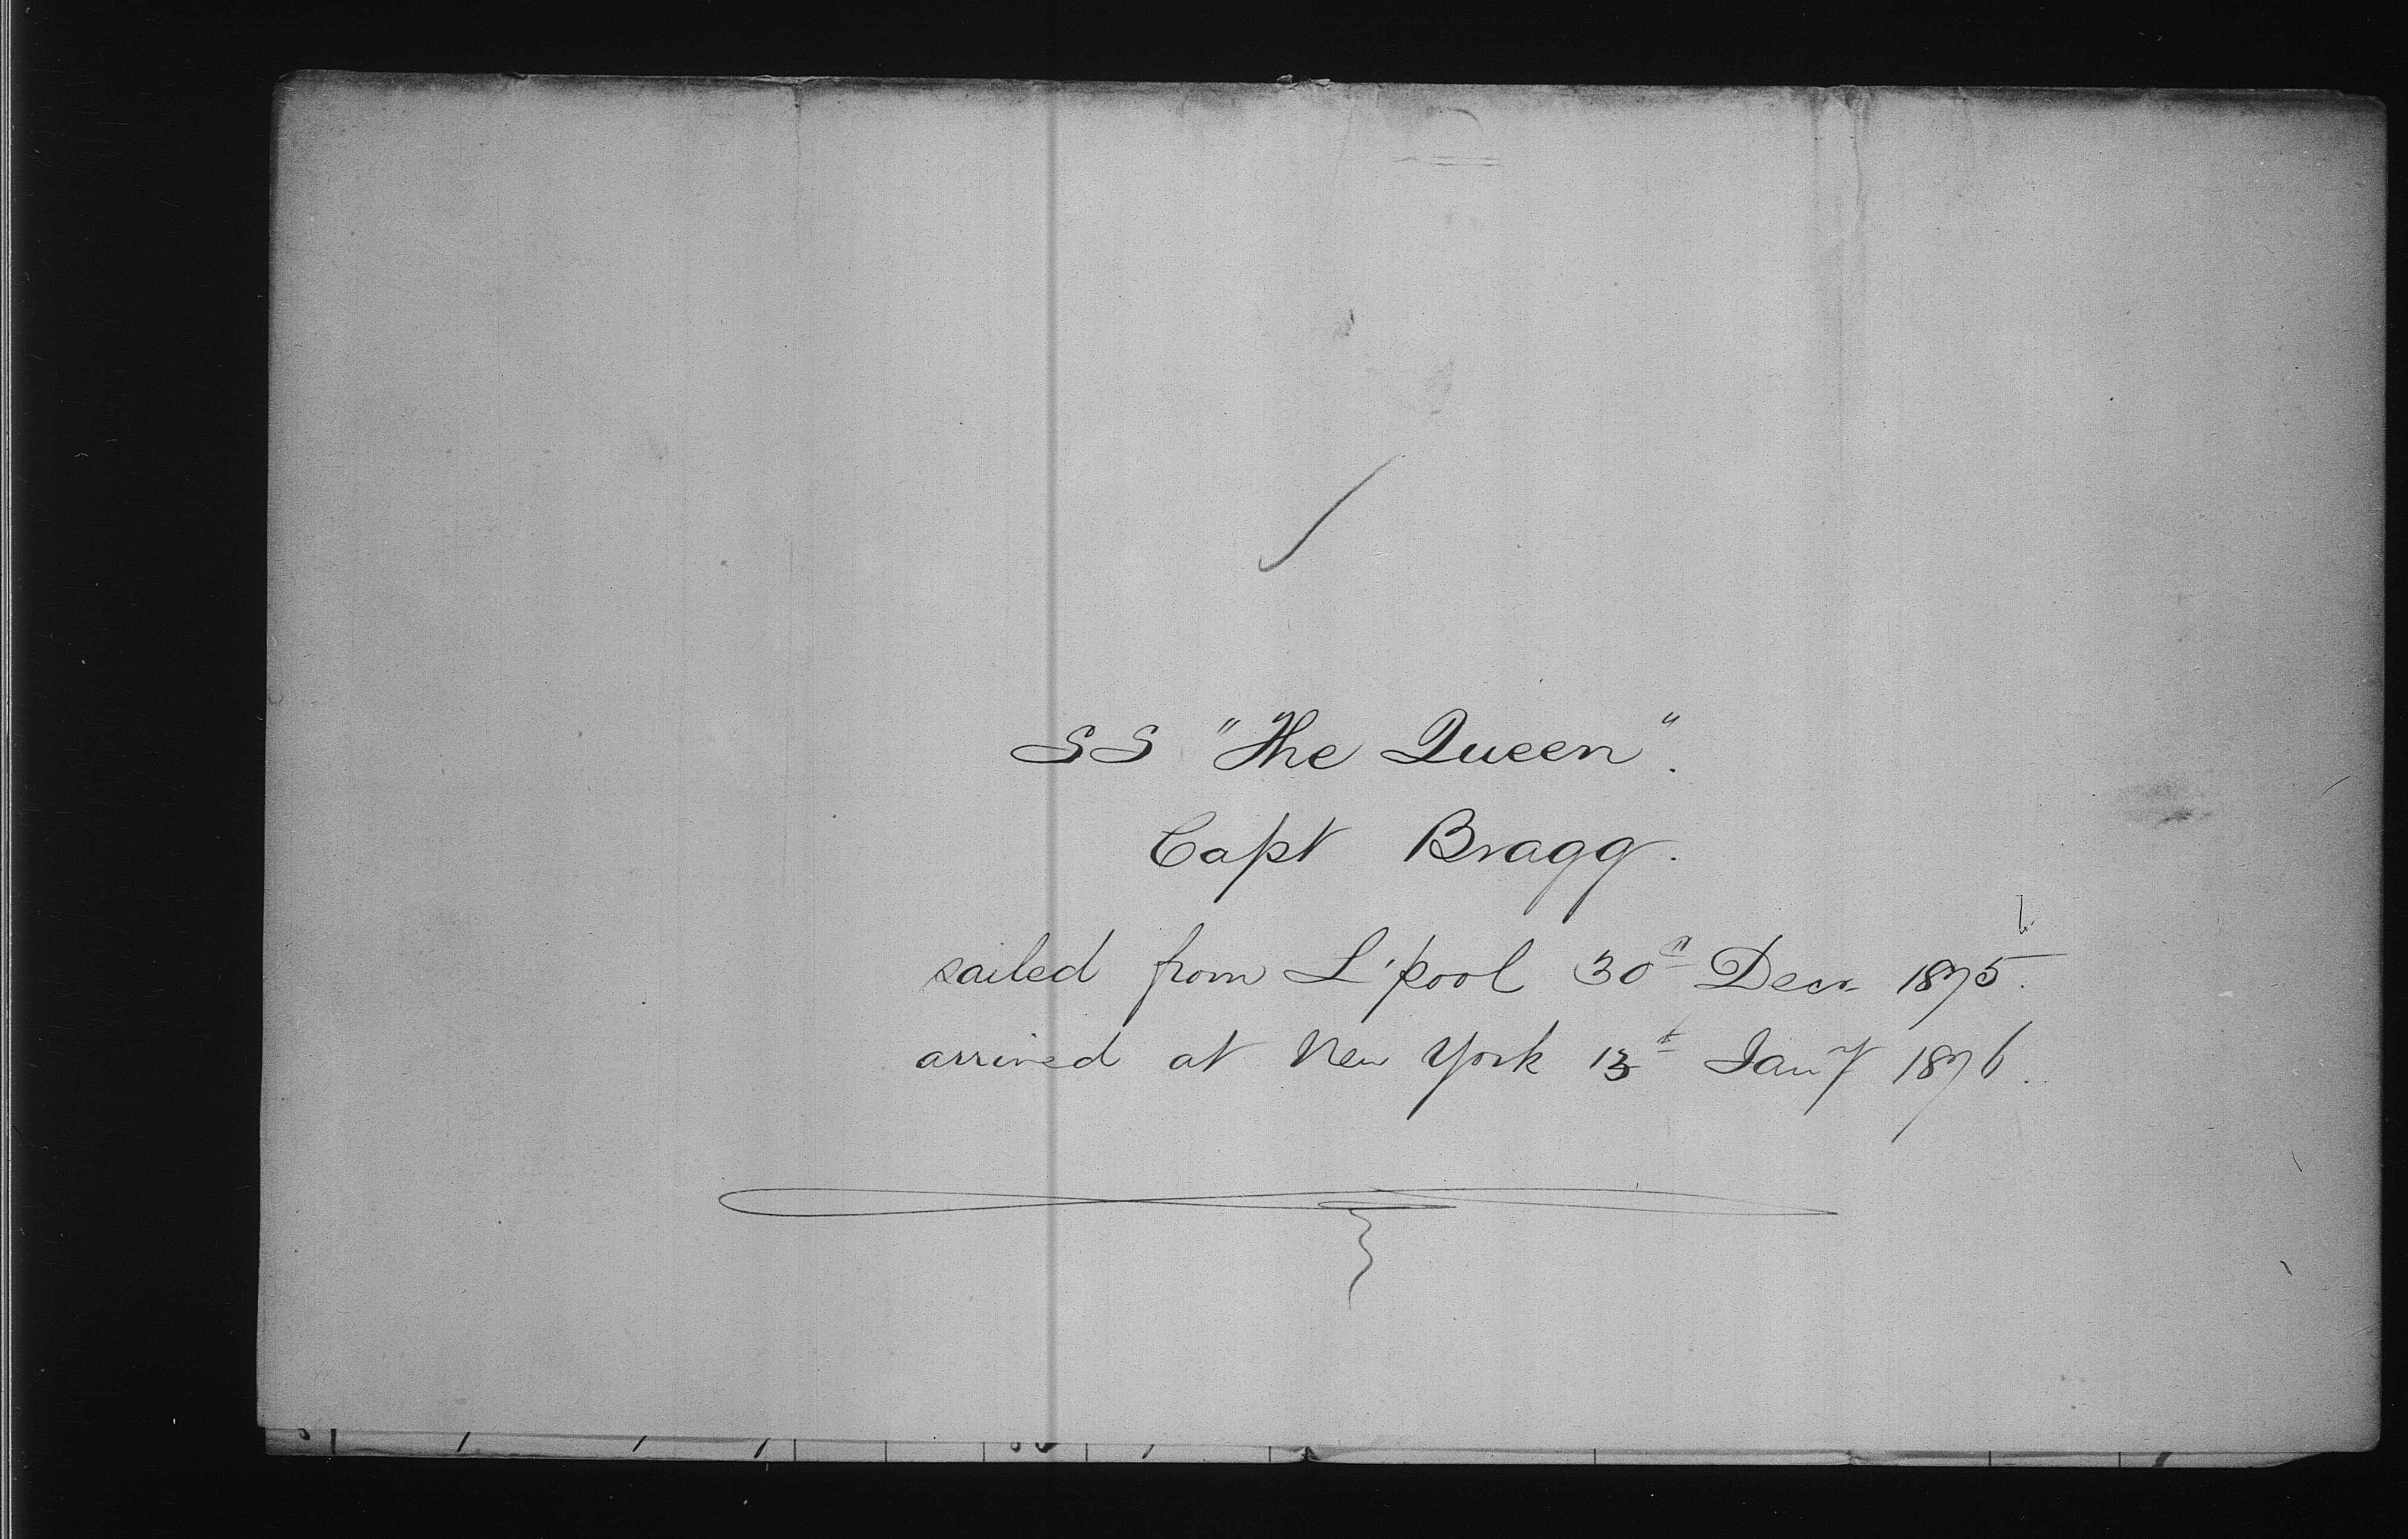 SS "The Queen".
Capt Bragg.
sailed from L'pool 30th Decr 1875.
arrived at New York 13th Jany 1876.